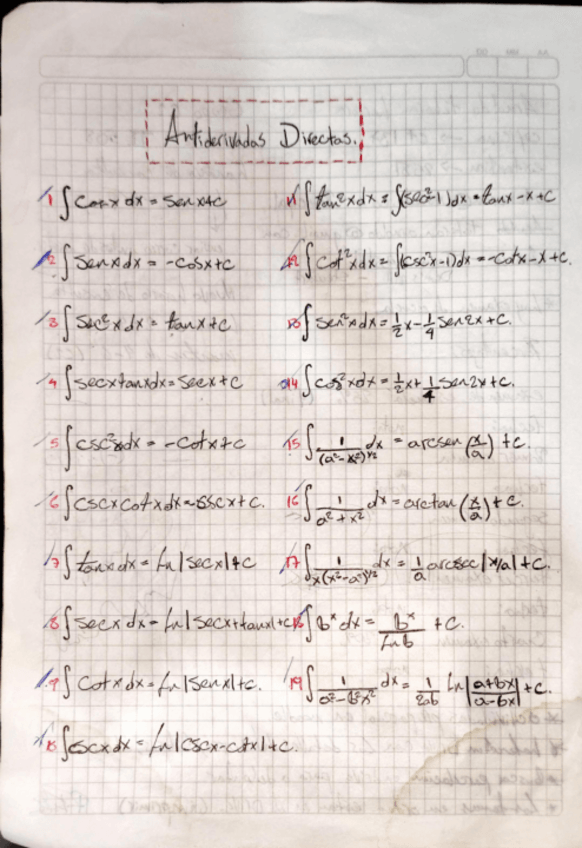 Antiderivadas Directas.
1 ∫ cosx dx = senx+c
2 ∫ senx dx = -cosx+c
3 ∫ sec²x dx = tanx+c
4 ∫ secxtanxdx = secx+c
5 ∫ csc²xdx = -cotx+c
6 ∫ cscxcotxdx = -cscx+c.
7 ∫ tanx dx = Ln|secx|+c
8 ∫ secx dx = Ln|secx+tanx|+c
9 ∫ cotx dx = Ln|senx|+c.
10 ∫ cscx dx = Ln|cscx-cotx|+c.
11 ∫ tan²xdx = ∫(sec²-1)dx = tanx-x+c
12 ∫ cot²xdx = ∫(csc²x-1)dx = -cotx-x+c.
13 ∫ sen²xdx = 1/2 x - 1/4 sen2x+c.
14 ∫ cos²xdx = 1/2 x + 1/4 sen2x+c.
15 ∫ 1/(a²-x²)^1/2 dx = arcsen (x/a) +c.
16 ∫ 1/a²+x² dx = arctan (x/a) +c.
17 ∫ 1/x(x²-a²)^1/2 dx = 1/a arcsec|x/a|+c.
18 ∫ b^x dx = b^x/Ln b +c.
19 ∫ 1/a²-b²x² dx = 1/2ab Ln|a+bx/a-bx|+c.